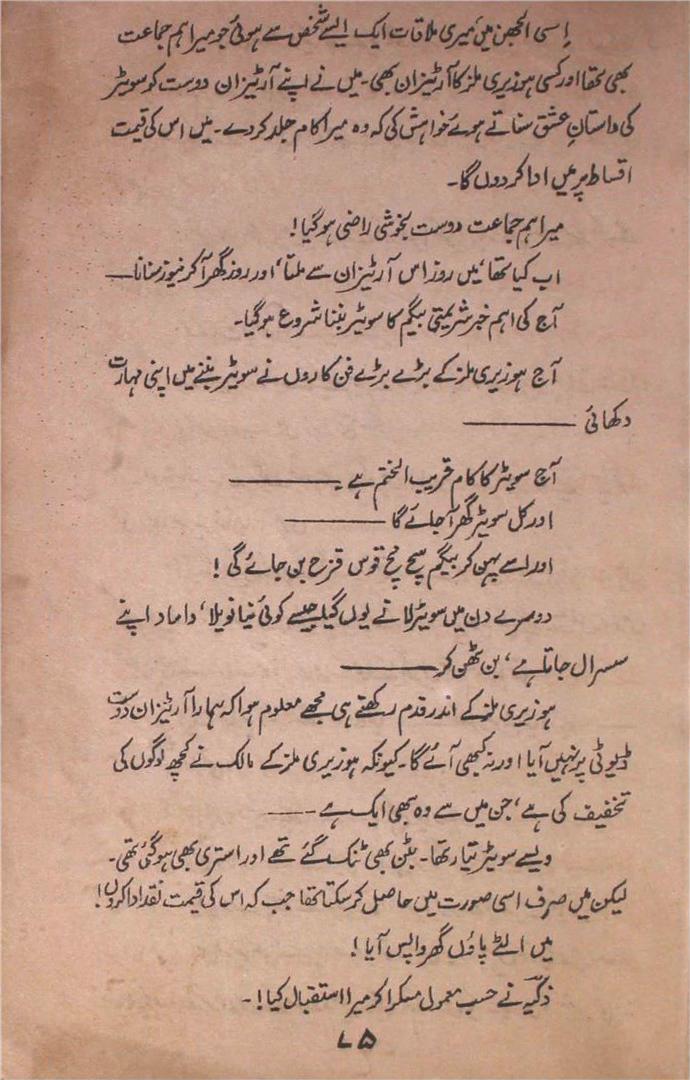 اِسی الجھن میں میری ملاقات ایک ایسے شخص سے ہوئی جو میرا ہم جماعت
بھی تھا اور کسی ہوزیری ملز کا آرٹیزان بھی۔ میں نے اپنے آرٹیزان دوست کو سویٹر
کی داستانِ عشق سناتے ہوئے خواہش کی کہ وہ میرا کام جلد کردے۔ میں اس کی قیمت
اقساط پر میں ادا کردوں گا۔
میرا ہم جماعت دوست بخوشی راضی ہوگیا!
اب کیا تھا، میں روز اس آرٹیزان سے ملتا، اور روز گھر آکر نیوز سناتا——
آج کی اہم خبر شریمتی بیگم کا سویٹر بننا شروع ہوگیا۔
آج ہوزیری ملز کے بڑے بڑے فن کاروں نے سویٹر بننے میں اپنی مہارت
دکھائی ————
آج سویٹر کا کام قریب الختم ہے۔————
اور کل سویٹر گھر آجائے گا ————
اور اسے پہن کر بیگم سچ مچ قوس قزح بن جائے گی!
دوسرے دن میں سویٹر لانے یوں گیا جیسے کوئی نیا نویلا، داماد اپنے
سسرال جاتا ہے، بن ٹھن کر————
ہوزیری ملز کے اندر قدم رکھتے ہی مجھے معلوم ہوا کہ ہمارا آرٹیزان دوست
ڈیوٹی پر نہیں آیا اور نہ کبھی آئے گا۔ کیونکہ ہوزیری ملز کے مالک نے کچھ لوگوں کی
تخفیف کی ہے، جن میں سے وہ بھی ایک ہے ——
ویسے سویٹر تیار تھا۔ بٹن بھی ٹنک گئے تھے اور استری بھی ہوگئی تھی۔
لیکن میں صرف اسی صورت میں حاصل کرسکتا تھا جب کہ اس کی قیمت نقد ادا کروں!
میں الٹے پاؤں گھر واپس آیا!
ذکیہ نے حسب معمول مسکرا کر میرا استقبال کیا!۔
۷۵